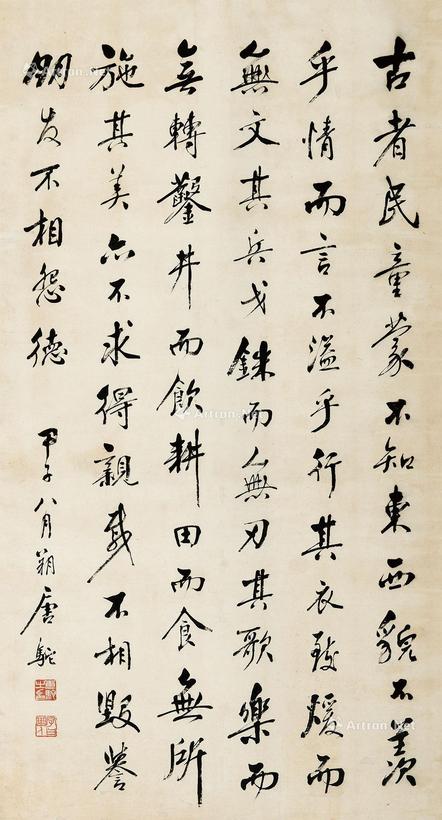 古者民童蒙不知東西貌不羨
乎情而言不溢乎行其衣致煖而
無文其兵戈銖而無刃其歌樂而
無轉鑿井而飲耕田而食無所
施其美亦不求得親戚不相毀譽
朋友不相怨德
甲子八月朔唐駝
Artron.net
Artron.net
Artron.net